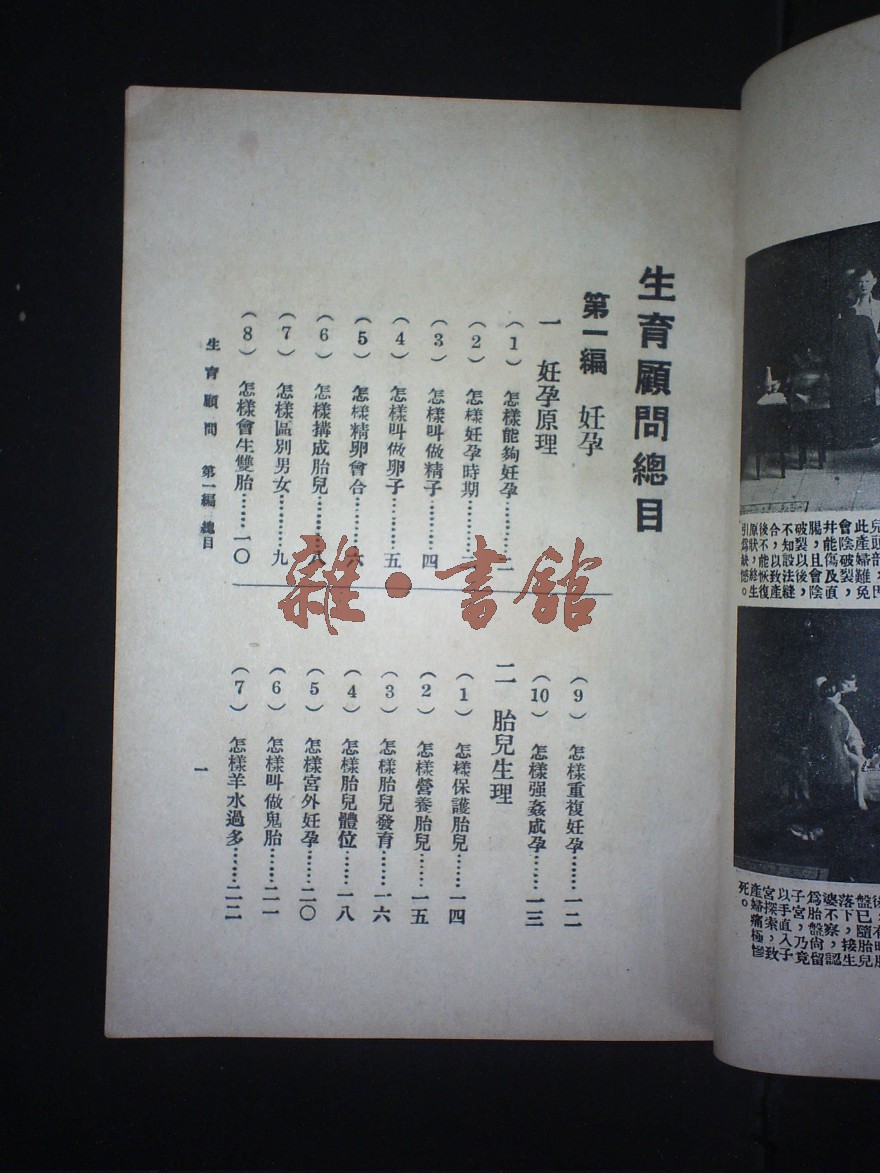 生育顧問總目
第一編　妊孕
一　妊孕原理
(1)　怎樣能夠妊孕………二
(2)　怎樣妊孕時期………二
(3)　怎樣叫做精子………四
(4)　怎樣叫做卵子………五
(5)　怎樣精卵會合………六
(6)　怎樣搆成胎兒………八
(7)　怎樣區別男女………九
(8)　怎樣會生雙胎………一〇
(9)　怎樣重複妊孕………一二
(10)　怎樣强姦成孕………一三
二　胎兒生理
(1)　怎樣保護胎兒………一四
(2)　怎樣營養胎兒………一五
(3)　怎樣胎兒發育………一六
(4)　怎樣胎兒體位………一八
(5)　怎樣宮外妊孕………二〇
(6)　怎樣叫做鬼胎………二一
(7)　怎樣羊水過多………二二
生育顧問　第一編　總目
一
雜·書館